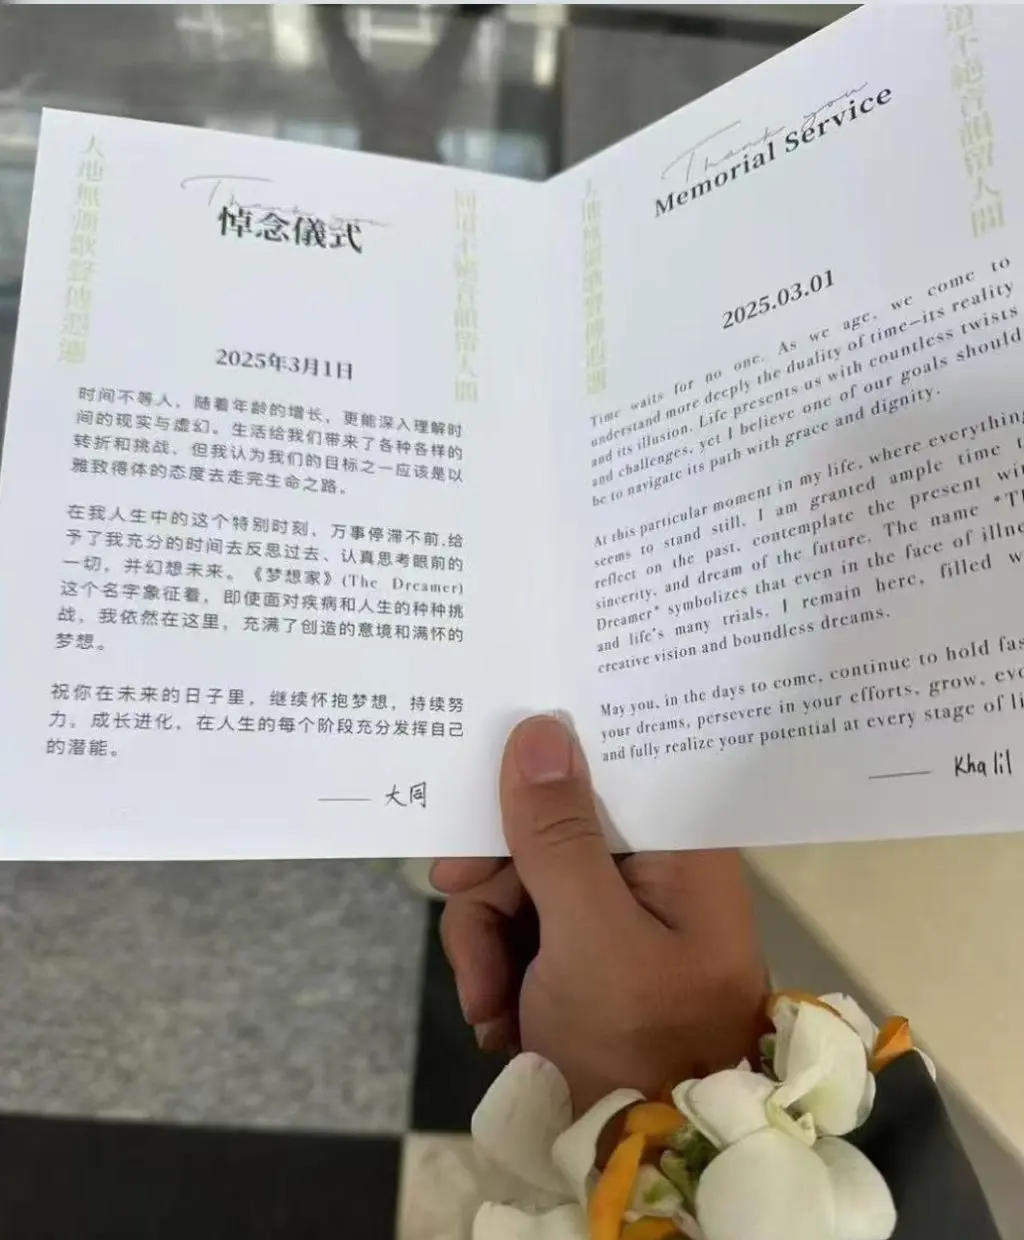 Thank you
悼念儀式
大地無疆歌聲傳遐邇
同道不絕音韻留人間
2025年3月1日
时间不等人，随着年龄的增长，更能深入理解时
间的现实与虚幻。生活给我们带来了各种各样的
转折和挑战，但我认为我们的目标之一应该是以
雅致得体的态度去走完生命之路。
在我人生中的这个特别时刻，万事停滞不前.给
予了我充分的时间去反思过去、认真思考眼前的
一切，并幻想未来。《梦想家》(The Dreamer)
这个名字象征着，即使面对疾病和人生的种种挑
战，我依然在这里，充满了创造的意境和满怀的
梦想。
祝你在未来的日子里，继续怀抱梦想，持续努
力，成长进化，在人生的每个阶段充分发挥自己
的潜能。
—— 大同
Thank you
Memorial Service
大地無疆歌聲傳遐邇
道不絕音韻留人間
2025.03.01
Time waits for no one. As we age, we come to
understand more deeply the duality of time—its reality
and its illusion. Life presents us with countless twists
and challenges, yet I believe one of our goals should
be to navigate its path with grace and dignity.
At this particular moment in my life, where everything
seems to stand still, I am granted ample time
reflect on the past, contemplate the present
sincerity, and dream of the future. The name
Dreamer* symbolizes that even in the face of
and life's many trials, I remain here, filled
creative vision and boundless dreams.
May you, in the days to come, continue to hold
your dreams, persevere in your efforts, grow,
and fully realize your potential at every stage of
—— Khalil